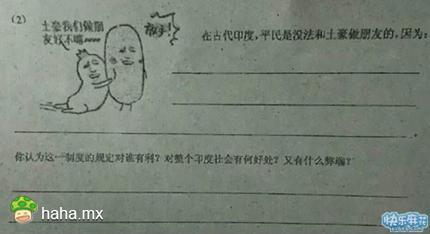 (2)
土豪我们做朋
友好不嘛~~~
放手!
在古代印度，平民是没法和土豪做朋友的，因为：
你认为这一制度的规定对谁有利？对整个印度社会有何好处？又有什么弊端？
haha.mx
快乐麻花